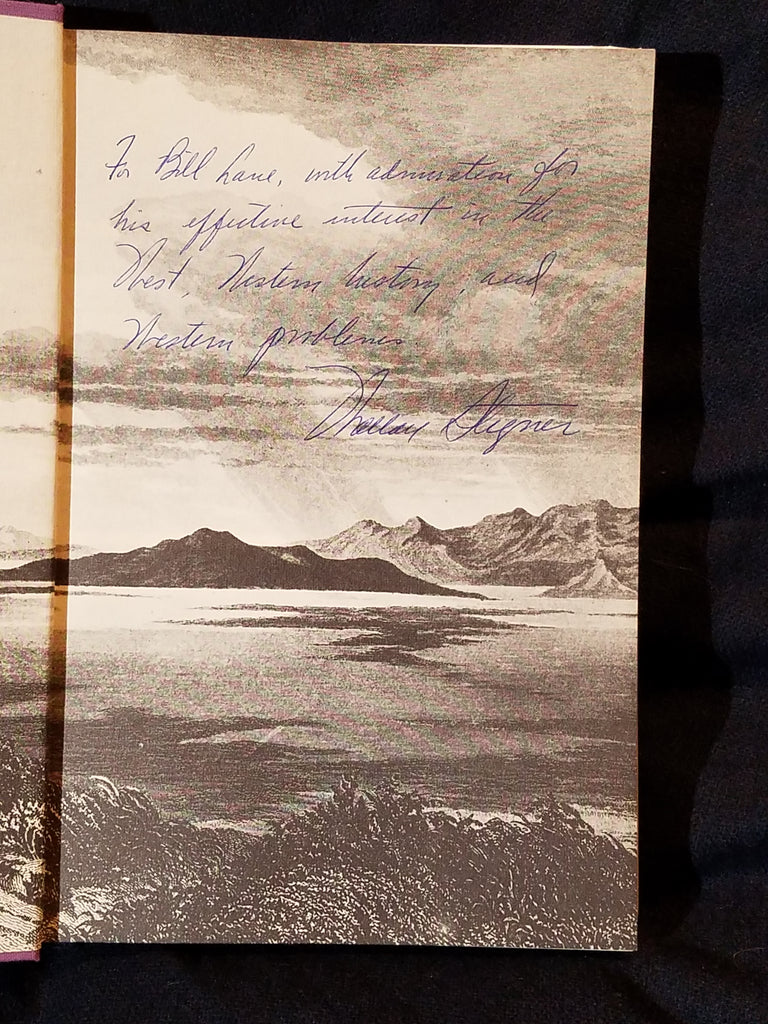 For Bill Lane, with admiration for
his effective interest in the
West, Western history, and
Western problems.
Wallace Stegner